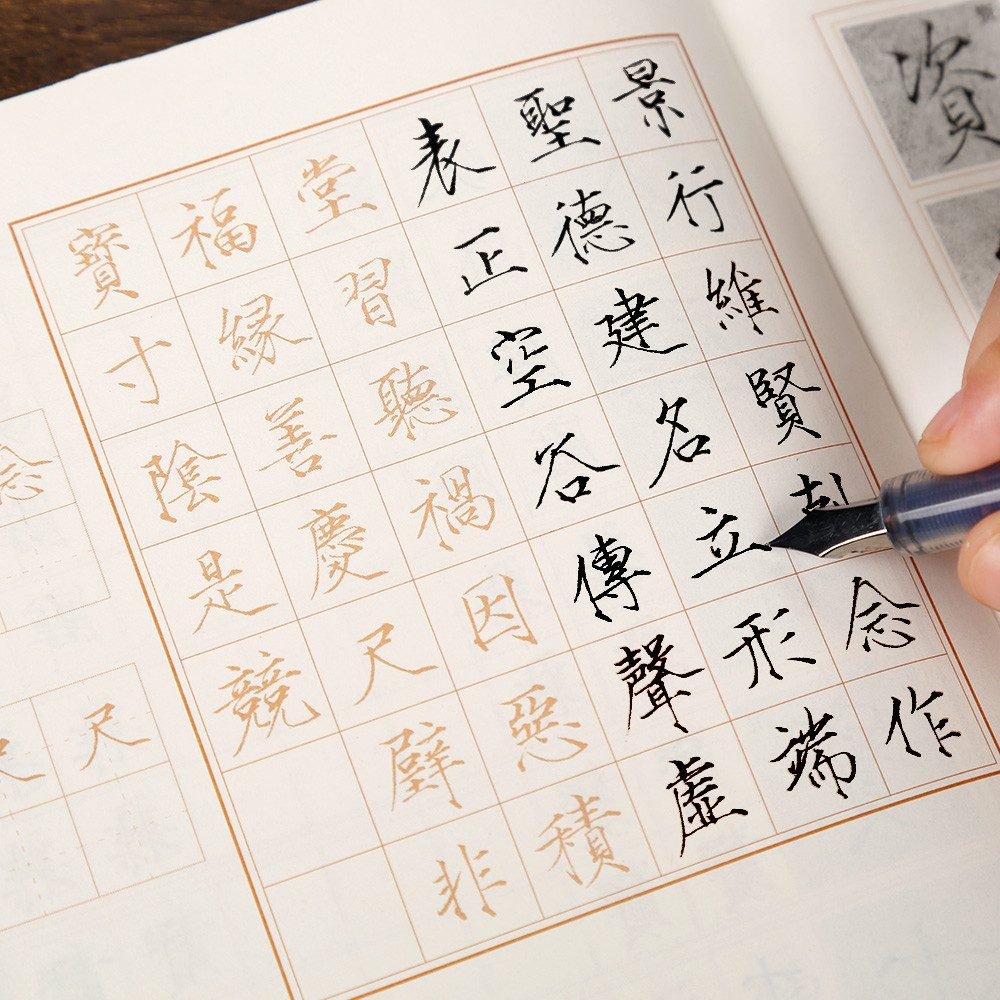 資
景行維賢念作
聖德建名立形端
表正空谷傳聲虛
堂習聽禍因惡積
福緣善慶尺璧非
寶寸陰是競
念
尺